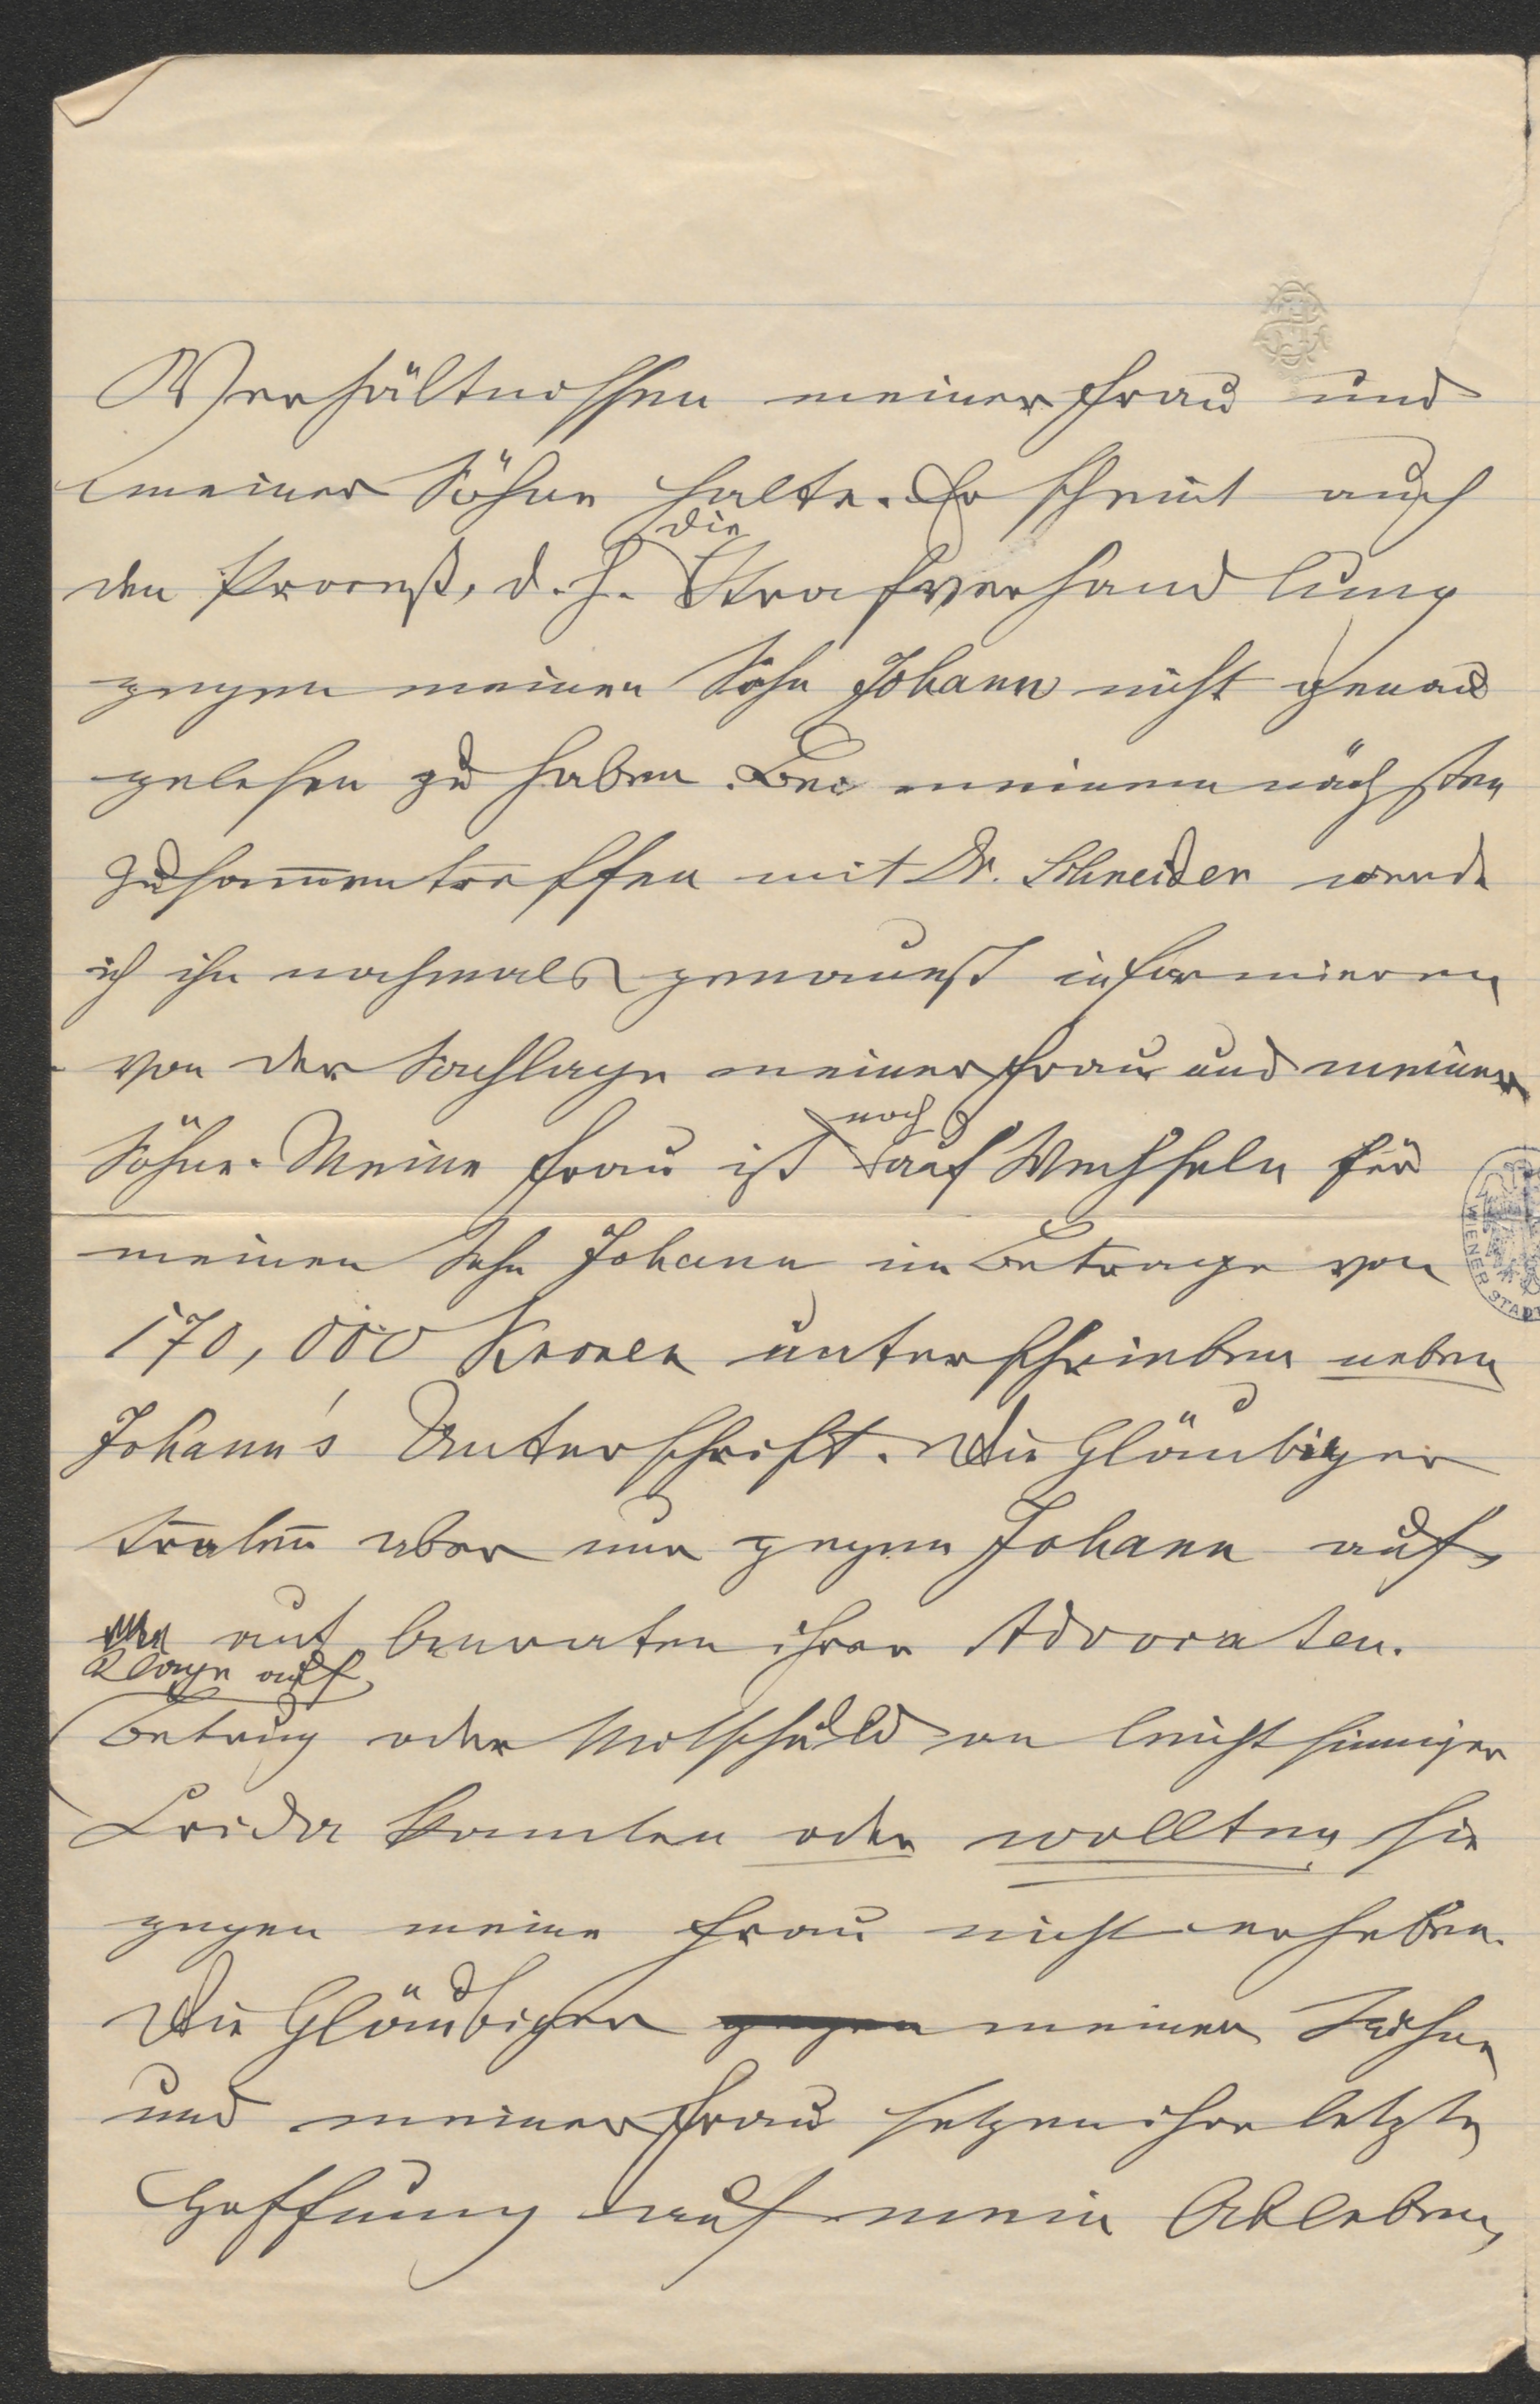 Verhältnissen meiner Frau und
meiner Söhne halte. Er scheint auch
die
den Proceß, d. h. Strafverhandlung
gegen meinen Sohn Johann nicht genau
gelesen zu haben. Bei meinem nächsten
Zusam̅entreffen mit Dr. Schneider werde
ich ihn nochmals genauest informieren
von der Sachlage meiner Frau und meiner
noch
Söhne. Meine Frau ist auf Wechseln für
meinen Sohn Johann im Betrage von
170,000 Kronen unterschrieben neben
Johann's Unterschrift. Die Gläubiger
traten aber nur gegen Johann auf,
auf anraten ihrer Advocaten.
Klage auf
Betrug oder Mitschuld an leichtsinniger
Crida konnten oder wollten sie
gegen meine Frau nicht erheben.
Die Gläubiger gegen meiner Söhne
und meiner Frau setzen ihre letzte
Hoffnung auf mein Ableben,
WIENER STADT